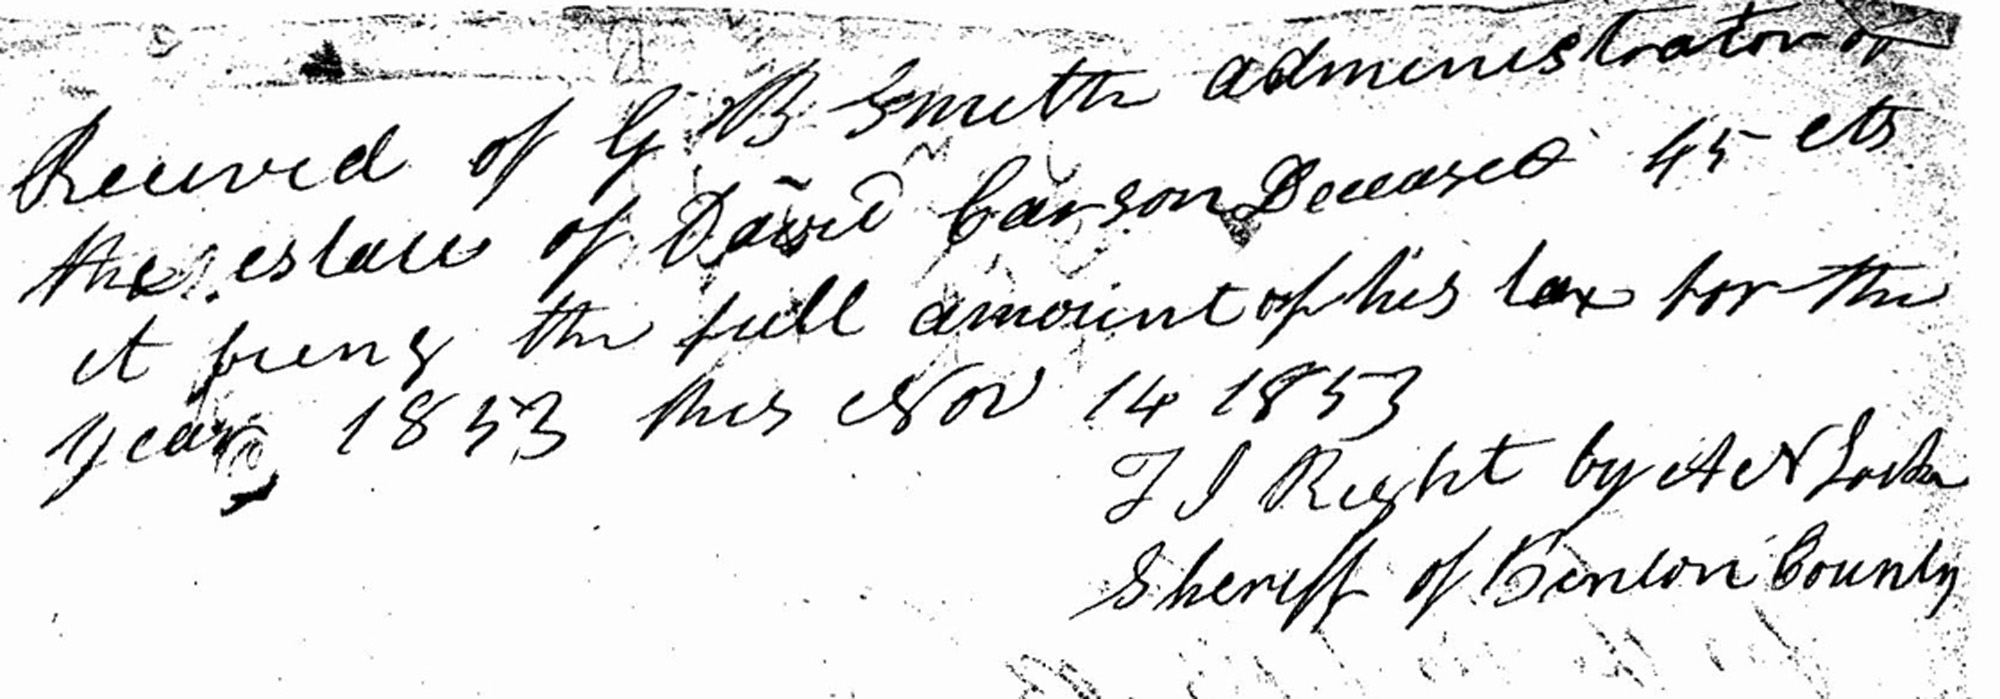 Received of G B Smith administrator of
the estate of David Carson Deceased 45 cts
it being the full amount of his tax for the
year 1853 this Nov 14 1853
T J Right by A N
Sheriff of Benton County